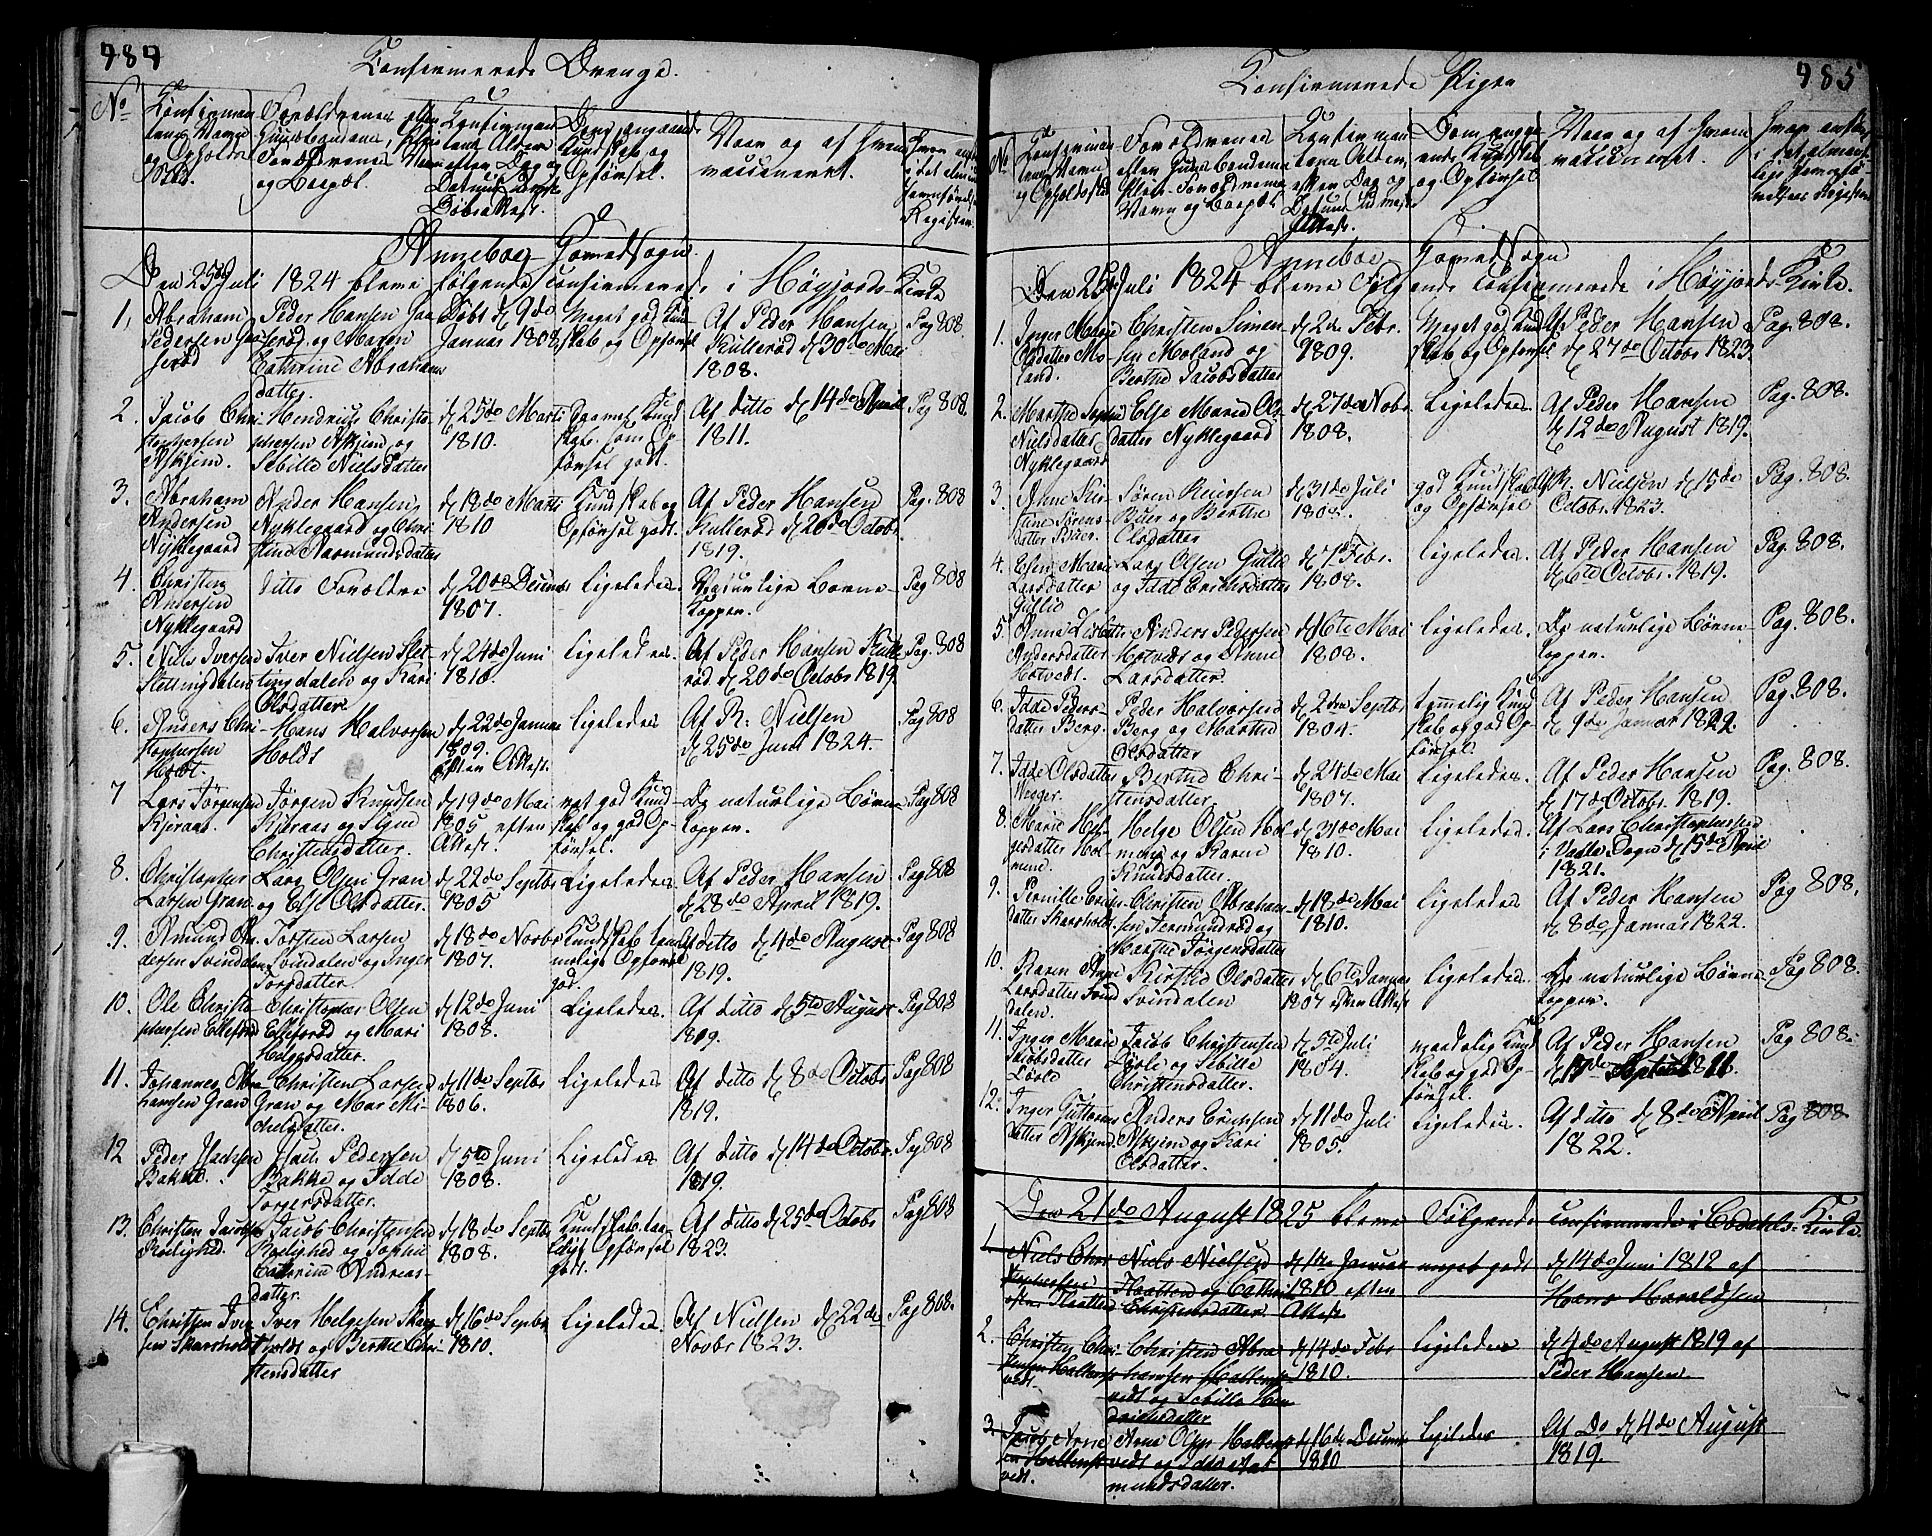 484
Confirmerede Drenge.
No
Confirman
tens Navn
og Opholds
Sted.
Forældrenes eller
Huusbondens,
Forældrenes
og Bopæl.
Confirman
tens Alder
efter Dag og
Datum
Døbeattest.
Dom angaaende
Kundskab og
Opførsel.
Naar og af hvem
vaccineret.
Hvor anført
i det almin
Jevnførelses
Register.
Anneboe Hovedsogn.
Den 25de Juli 1824 bleve følgende confirmerede i Høyjords Kirke
1. Abraham
Pedersen
Peder Hansen
og Maren
Cathrine Abrahams
datter.
Døbt d 9de
Januar 1808
Meget god Kund
skab og Opførsel
Af Peder Hansen
Kullerød d 30de Mai
1808.
Pag 808.
2. Jacob Chri-
stophersen
Askjem.
Hendrich Christo
phersen Askjem og
Sibille Nielsdatter
d 25de Marti
1810.
Kund
skab, som Op
førsel godt.
Af ditto d 14de April
1811.
Pag 808.
3. Abraham
Andersen
Nyklegaard
Anders Hansen
Nyklegaard og Chri
stine Aasmundsdatter
d 18de Marti
1810
Kundskab og
Opførsel godt.
Af Peder Hansen
Kullerød d 20de Octobr.
1819.
Pag. 808
4. Christen
Andersen
Nyklegaard
ditto Forældre
d 20de Decemb
1807.
Ligeledes.
Naturlige Børne-
kopper.
Pag 808
5. Niels Iversen
Slettingdalen
Iver Nielsen Slet-
tingdalen og Kari
Olsdatter.
d 24de Juni
1810.
Ligeledes.
Af Peder Hansen Kulle
rød d 20de Octobr 1819.
Pag. 808
6. Anders Chri-
stophersen
Holdt.
Hans Halvorsen
Holdt
d 22de Januar
1809.
efter Attest.
Ligeledes
Af R. Nielsen
d 25de Juni 1824.
Pag 808
7 Lars Jørgensen
Kjeraas.
Jørgen Knudsen
Kjeraas og Signe
Christensdatter.
d 19de Mai
1805 efter
Attest.
god Kund
skab og god Op
førsel.
De naturlige Børne
kopper.
Pag 808
8. Christopher
Larsen Gran
Lars Olsen Gran
og Else Olsdatter.
d 22de Septbr
1805
Ligeledes.
Af Peder Hansen
d 28de April 1819.
Pag 808
9. Amund An
dersen Svindalen
Torsten Larsen
Svindalen og Inger
Torsdatter.
d 18de Novbr
1807.
Kundskab tem
melig Opførsel
god.
Af ditto d 4de August
1819.
Pag 808
10. Ole Christo
phersen Ellefsrød
Christopher Olsen
Ellefsrød og Mari
Helgesdatter.
d 12de Juni
1808.
Ligeledes.
Af ditto d 5te August
1819.
Pag 808
11. Johannes Chri
Gran
Christen Larsen
Gran og Mar Mi-
chelsdatter.
d 11de Septbr
1806.
Ligeledes
Af ditto d 8de Octobr
1819.
Pag 808
12 Peder
Bakke.
Pedersen
Bakke og Idde
Torgersdatter.
d 5te Juni
1808.
Ligeledes
Af ditto d 14de Octobr
1819.
Pag 808
13. Christen Jacobsen
Rolighed.
Jacob Christensen
Rolighed og Sophie
Cathrine Andreas-
datter.
d 18de Septbr
1808.
Kundskab
Opførsel
godt.
Af ditto d 25de Octobr
1823.
Pag 808
14. Christen Iver
sen Skarsholdt
Iver Helgesen Skars
holdt og Berthe Chri-
stensdatter
d 16de Septbr
1810.
Ligeledes.
Af Nielsen d 22de
Novbr 1823.
Pag 808.
485
Confirmerede Piger
No
Confirman
tens Navn
og Opholdssted
Forældrenes
eller Huusbondens
Forældrenes
Navn og Bopæl
Confirman
tens Alder
efter Dag og
Datum
Attest.
Dom angaa
ende Kundskab
og Opførsel
Naar og af hvem
vaccineret.
Hvor anført
i det almin
lige Jevnfø-
relses Register
Annebøe Hovedsogn
Den 25de Juli 1824 bleve Følgende confirmerede i Høyjords Kirke.
1. Inger Marie
Olsdatter Mo-
land.
Christen Simen
sen Moland og
Berthe Jacobsdatter
d 2den Febr.
1809.
Meget god Kund
skab og Opførsel
Af Peder Hansen
d 27de Octobr 1823.
Pag. 808.
2. Marthe Sophie
Nielsdatter
Nyklegaard
Else Marie Ols
datter Nyklegaard
d 27de Novbr
1808.
Ligeledes.
Af Peder Hansen
d 12de August 1819.
Pag. 808.
3. Anne Kir-
stine Sørens-
datter Buer.
Søren
Buer og Berthe
Olsdatter
d 31de Juli
1808.
god Kundskab
og Opførsel
Af R. Nielsen d 15de
Octobr. 1823.
Pag. 808.
4. Elen Marie
Larsdatter
Gullie
Lars Olsen Gullie
og Idde Erichsdatter
d 7de Febr.
1808.
Ligeledes.
Af Peder Hansen
d 6te Octobr. 1819.
Pag. 808.
5. Anne Lisbeth
Andersdatter
Hotvedt.
Anders Pedersen
Hotvedt og Anne
Larsdatter.
d 16te Mai
1808.
Ligeledes.
De naturlige Børne-
kopper.
Pag. 808.
6. Idde Peders-
datter Berg.
Peder Halvorsen
Berg og Marthe
Olsdatter
d 2den Septbr
1804.
temmelig Kund
skab og god Op-
førsel.
Af Peder Hansen
d 9de Januar 1822.
Pag. 808.
7. Idde Olsdatter
Berthe Chri-
stensdatter.
d 24de Mai
1807.
Ligeledes.
Af Peder Hansen
d 17de Octobr. 1819.
Pag. 808.
8. Marie Hel-
gesdatter Hol-
mene.
Helge Olsen Hol
mene og Karen
Knudsdatter.
d 31de Mai
1810.
Ligeledes.
Af Lars Christophersen
i Vaale Sogn d 15de April
1821.
9. Pernille Chri
datter Skarsholt
Christen Abraham
sen og
Marthe Jørgensdatter
d 18de Mai
1810.
Ligeledes
Af Peder Hansen
d 8de Januar 1822.
Pag 808.
10. Karen Anne
Larsdatter Svin
dalen.
Kirstie Olsdatter
Svindalen
d 6te Januar
1807 efter Attest
Ligeledes
De naturlige Børne
kopper.
Pag 808.
11. Inger Marie
Jacobsdatter
Løvle
Jacob Christensen
Løvle og Sibille
Christensdatter.
d 5te Juli
1804.
maadelig Kund
skab og god Op-
førsel.
Af Peder Hansen
Pag 808.
12. Inger
datter Askjem
Anders Erichsen
Askjem og Kari
Olsdatter.
d 11de Juli
1805.
Ligeledes.
Af ditto d 8de April
1822.
Pag 808
Den 21de August 1825 bleve Følgende confirmerede i Kirke.
1. Niels Chri
stophersen
Niels Nielsen
og Cathrine
Christensdatter
d 1ste Januar
1810 efter
Attest
meget godt
d 14de Juni 1812 af
Hans Haraldsen
2. Christen Chri-
stensen Hallens-
vedt.
Christen Abra
hamsen Hallens-
vedt og Sibille Hen
drichsdatter
d 14de Febr
1810.
Ligeledes
d 4de August 1819 af
Peder Hansen.
3. Jacob Arne
sen Hallens
vedt.
Arne Olsen Hallens
vedt og Idde Aas
mundsdatter.
d 16de Decemb
1810
Ligeledes
Af Do d 4de August
1819.